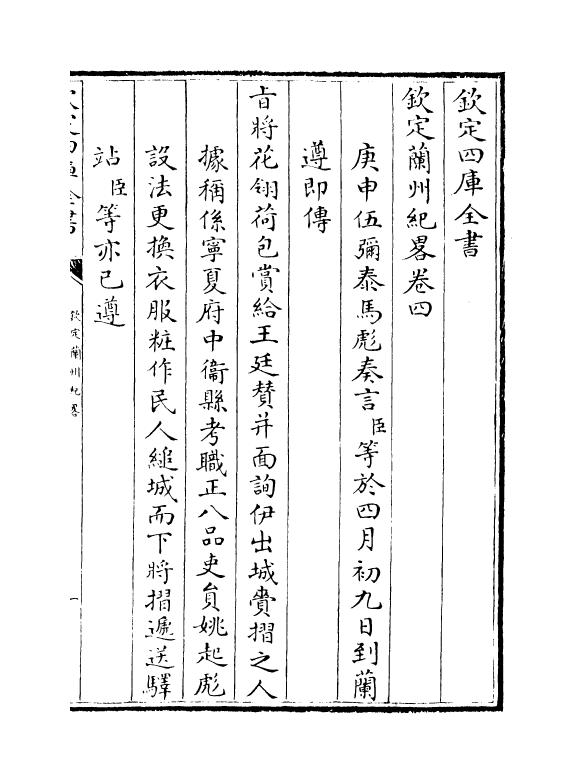 欽定四庫全書
欽定蘭州紀畧卷四
庚申伍彌泰馬彪奏言臣等於四月初九日到蘭
遵即傳
旨將花翎荷包賞給王廷贊并面詢伊出城賫摺之人
據稱係寧夏府中衞縣考職正八品吏員姚起彪
設法更換衣服粧作民人縋城而下將摺遞送驛
站臣等亦已遵
欽定四庫全書
欽定蘭州紀畧
一